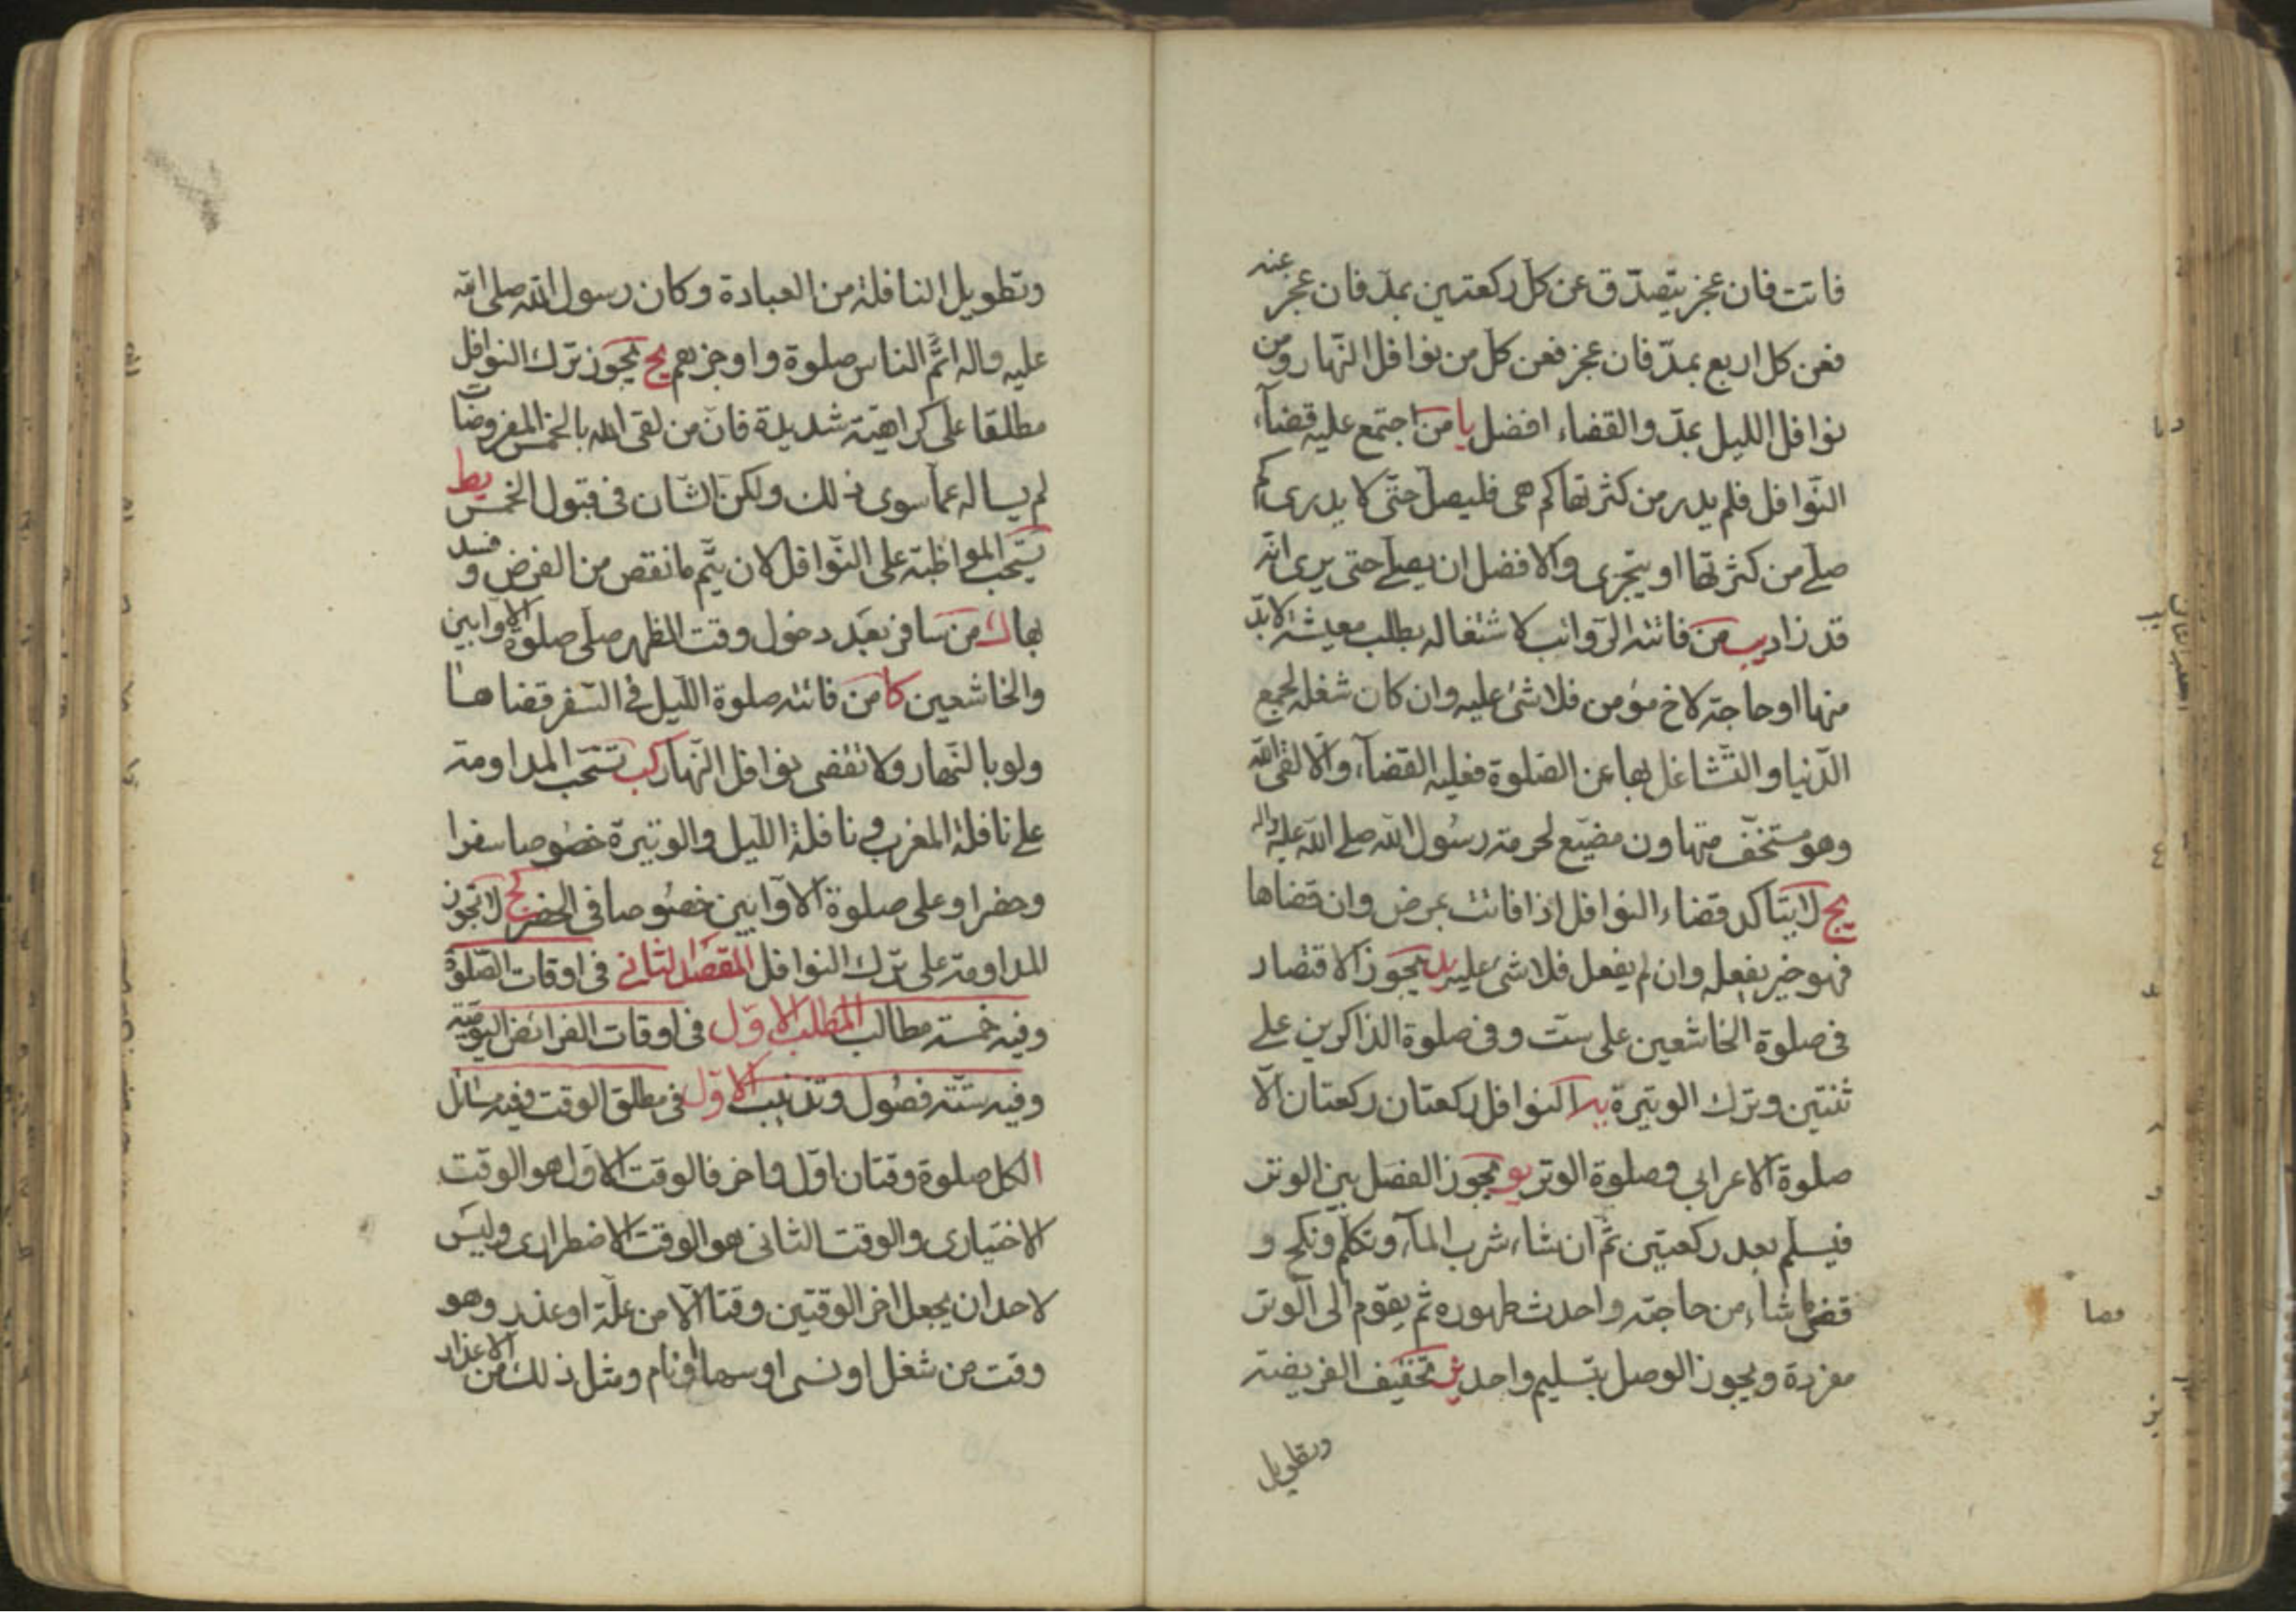 فاتت فان عجز يتصدّق عن كل ركعتين بمدّ فان عجز عنه
فعن كل اربع بمدّ فان عجز فعن كل من نوافل النّهار ومن
نوافل الليل بمدّ والقضاء افضل يا من اجتمع عليه قضآء
النّوافل فلم يدر من كثرتها كم هى فليصلّ حتّى لا يدرى كم
صلّے من كثرتها او يتحرى والافضل ان يصلّے حتى يرى انّه
قد زاد يب من فاتته الرّواتب لاشتغاله بطلب معيشة لابدّ
منها او حاجة لاخ مؤمن فلا شئ عليه وان كان شغله لجمع
الدّنيا والتّشاغل بها عن الصّلوة فعليه القضآء والّا لقى الله
وهو مستخفّ متهاون مضيّع لحرمة رسُول الله صلے الله عليه واله
يج لا يتاكد قضاء النوافل اذا فاتت بمرض وان قضاها
فهو خير يفعله وان لم يفعل فلا شئ عليه يد يجوز الاقتصار
فى صلوة الخاشعين على ستّ وفى صلوة الذاكرين على
ثنتين وترك الوتيرة يه النوافل ركعتان ركعتان الّا
صلوة الاعرابي وصلوة الوتر يو يجوز الفصل بين الوتر
فيسلّم بعد ركعتين ثم ان شاء شرب المآء وتكلّم ونكح و
قضى ما شاء من حاجته واحدث طهوره ثم يقوم الى الوتر
مفردة ويجوز الوصل بتسليم واحد يز تخفيف الفريضة
وتطويل
وتطويل النافلة من العبادة وكان رسول الله صلى الله
عليه واله اتمّ الناس صلوة واوجزهم يح يجوز ترك النوافل
مطلقا على كراهيّة شديدة فانّ من لقى الله بالخمس المفروضات
لم يساله عمّا سوى ذلك ولكن الشّان فى قبول الخمس يط
تستحب المواظبة على النّوافل لان يتمّ ما نقص من الفرض وفسد
بها ك من سافر بعد دخول وقت الظهر صلّى صلوة الاوابين
والخاشعين كا من فاتته صلوة اللّيل فى السّفر قضاها
ولو بالنّهار ولا تقضى نوافل النّهار كب تستحّب المداومة
علے نافلة المغرب ونافلة اللّيل والوتيرة خصُوصا سفرا
وحضرا وعلى صلوة الاوّابين خصُوصا فى الحضر كج لا تجوز
المداومة على ترك النوافل المقصد الثانى فى اوقات الصّلوة
وفيه خمسة مطالب المطلب الاوّل فى اوقات الفرائض اليوميّة
وفيه ستّة فصُول وتذنيب الاوّل فى مطلق الوقت وفيه مسائل
ا لكل صلوة وقتان اوّل واخر فالوقت الاوّل هو الوقت
الاختيارى والوقت الثانى هو الوقت الاضطرارى وليس
لاحد ان يجعل اخر الوقتين وقتا الّا من علّة او عذر وهو
وقت من شغل او نسى او سها او نام ومثل ذلك من الاعذار